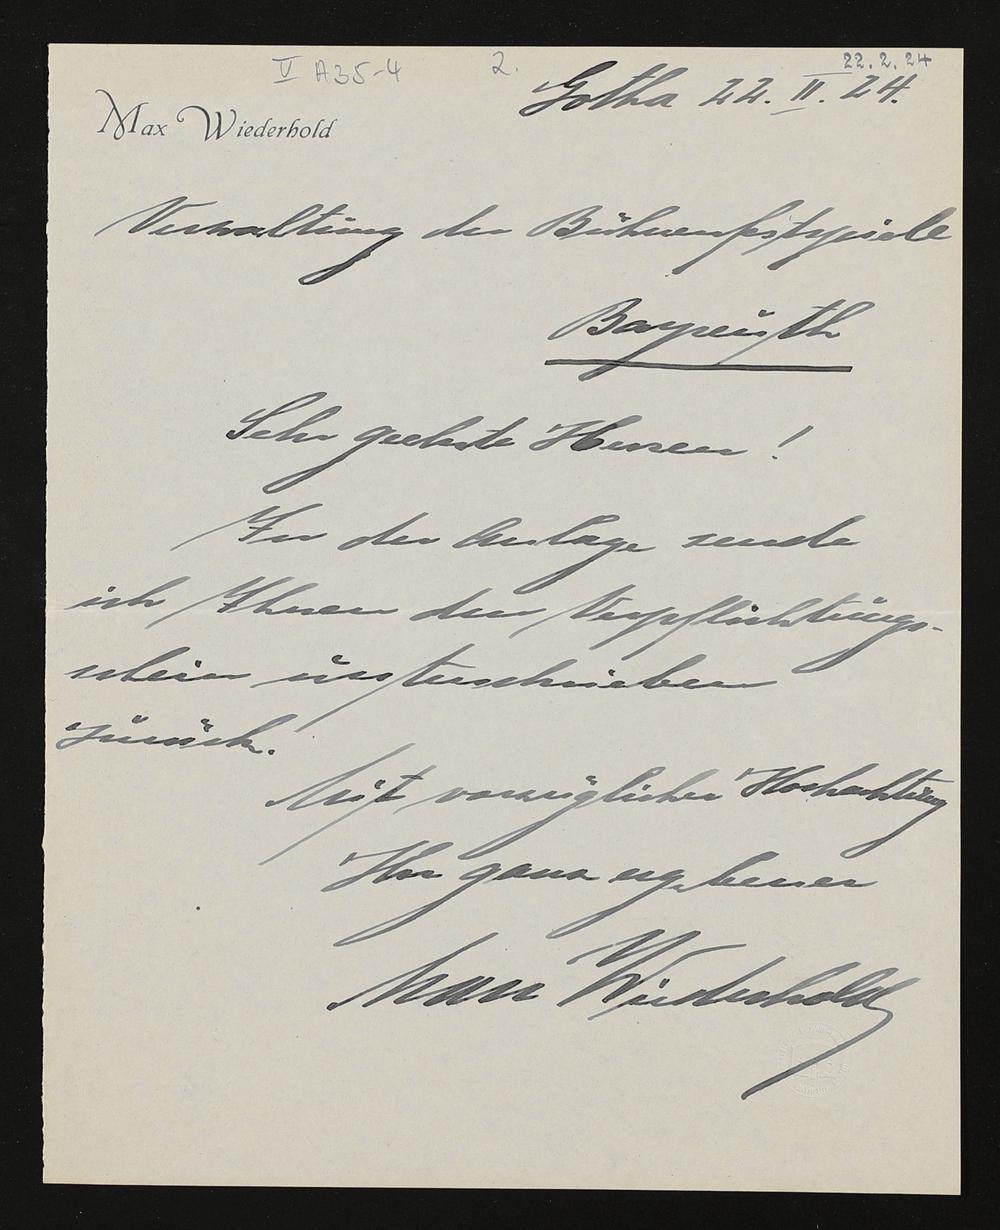 V A35-4 2. 22.2.24
Gotha 22. II. 24.
Max Wiederhold
Verwaltung der Bühnenfestspiele
Bayreuth
Sehr geehrte Herren!
In der Anlage sende
ich Ihnen den Verpflichtungs-
schein unterschrieben
zurück.
Mit vorzüglicher Hochachtung
Ihr ganz ergebener
Max Wiederhold